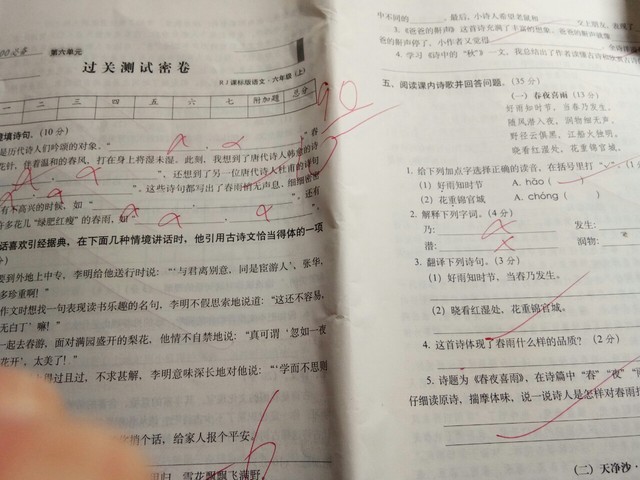 第六单元
过关测试密卷
RJ课标版语文·六年级(上)
一 二 三 四 五 六 七 附加题 总分
90
填诗句。(10分)
是历代诗人们吟颂的对象。"
花针,伴着温和的春风,打在身上将湿未湿。此刻,我想到了唐代诗人韩愈的诗
,还想到了另一位唐代诗人杜甫的诗句
。这些诗句都写出了春雨悄无声息、细细密密
有不高兴的时候,如"
"。还有
许多花儿"绿肥红瘦"的春雨,如
话喜欢引经据典,在下面几种情境讲话时,他引用古诗文恰当得体的一项
要到外地上中专,李明给他送行时说:"'与君离别意,同是宦游人',张华,
多珍重啊!"
作文时想找一句表现读书乐趣的名句,李明不假思索地说道:"这还不容易,
无白丁'嘛!"
一起去春游,面对满园盛开的梨花,他情不自禁地说:"真可谓'忽如一夜
花开',太美了!"
得过且过,不求甚解,李明意味深长地对他说:"'学而不思则
个话,给家人报个平安。
雪花飘飘飞满野
中不同的
,最后,小诗人希望老鼠和
3.《爸爸的鼾声》这首诗充满了丰富的想象,
爸爸的鼾声停了,小作者又觉得
4. 学习《诗中的"秋"》一文,我总结出了作者读懂古诗
五、阅读课内诗歌并回答问题。(35分)
(一)春夜喜雨(15分)
好雨知时节,当春乃发生。
随风潜入夜,润物细无声。
野径云俱黑,江船火独明。
晓看红湿处,花重锦官城。
1. 给下列加点字选择正确的读音,在括号里打"√"。(1
(1)好雨知时节 A. hǎo(
(2)花重锦官城 A. chóng(
2. 解释下列字词。(4分)
乃: 发生:
潜: 润物:
3. 翻译下列诗句。(3分)
(1)好雨知时节,当春乃发生。
(2)晓看红湿处,花重锦官城。
4. 这首诗体现了春雨什么样的品质?(2分)
5. 诗题为《春夜喜雨》,在诗篇中"春""夜"
仔细读原诗,揣摩体味,说一说诗人是怎样对春雨
(二)天净沙·